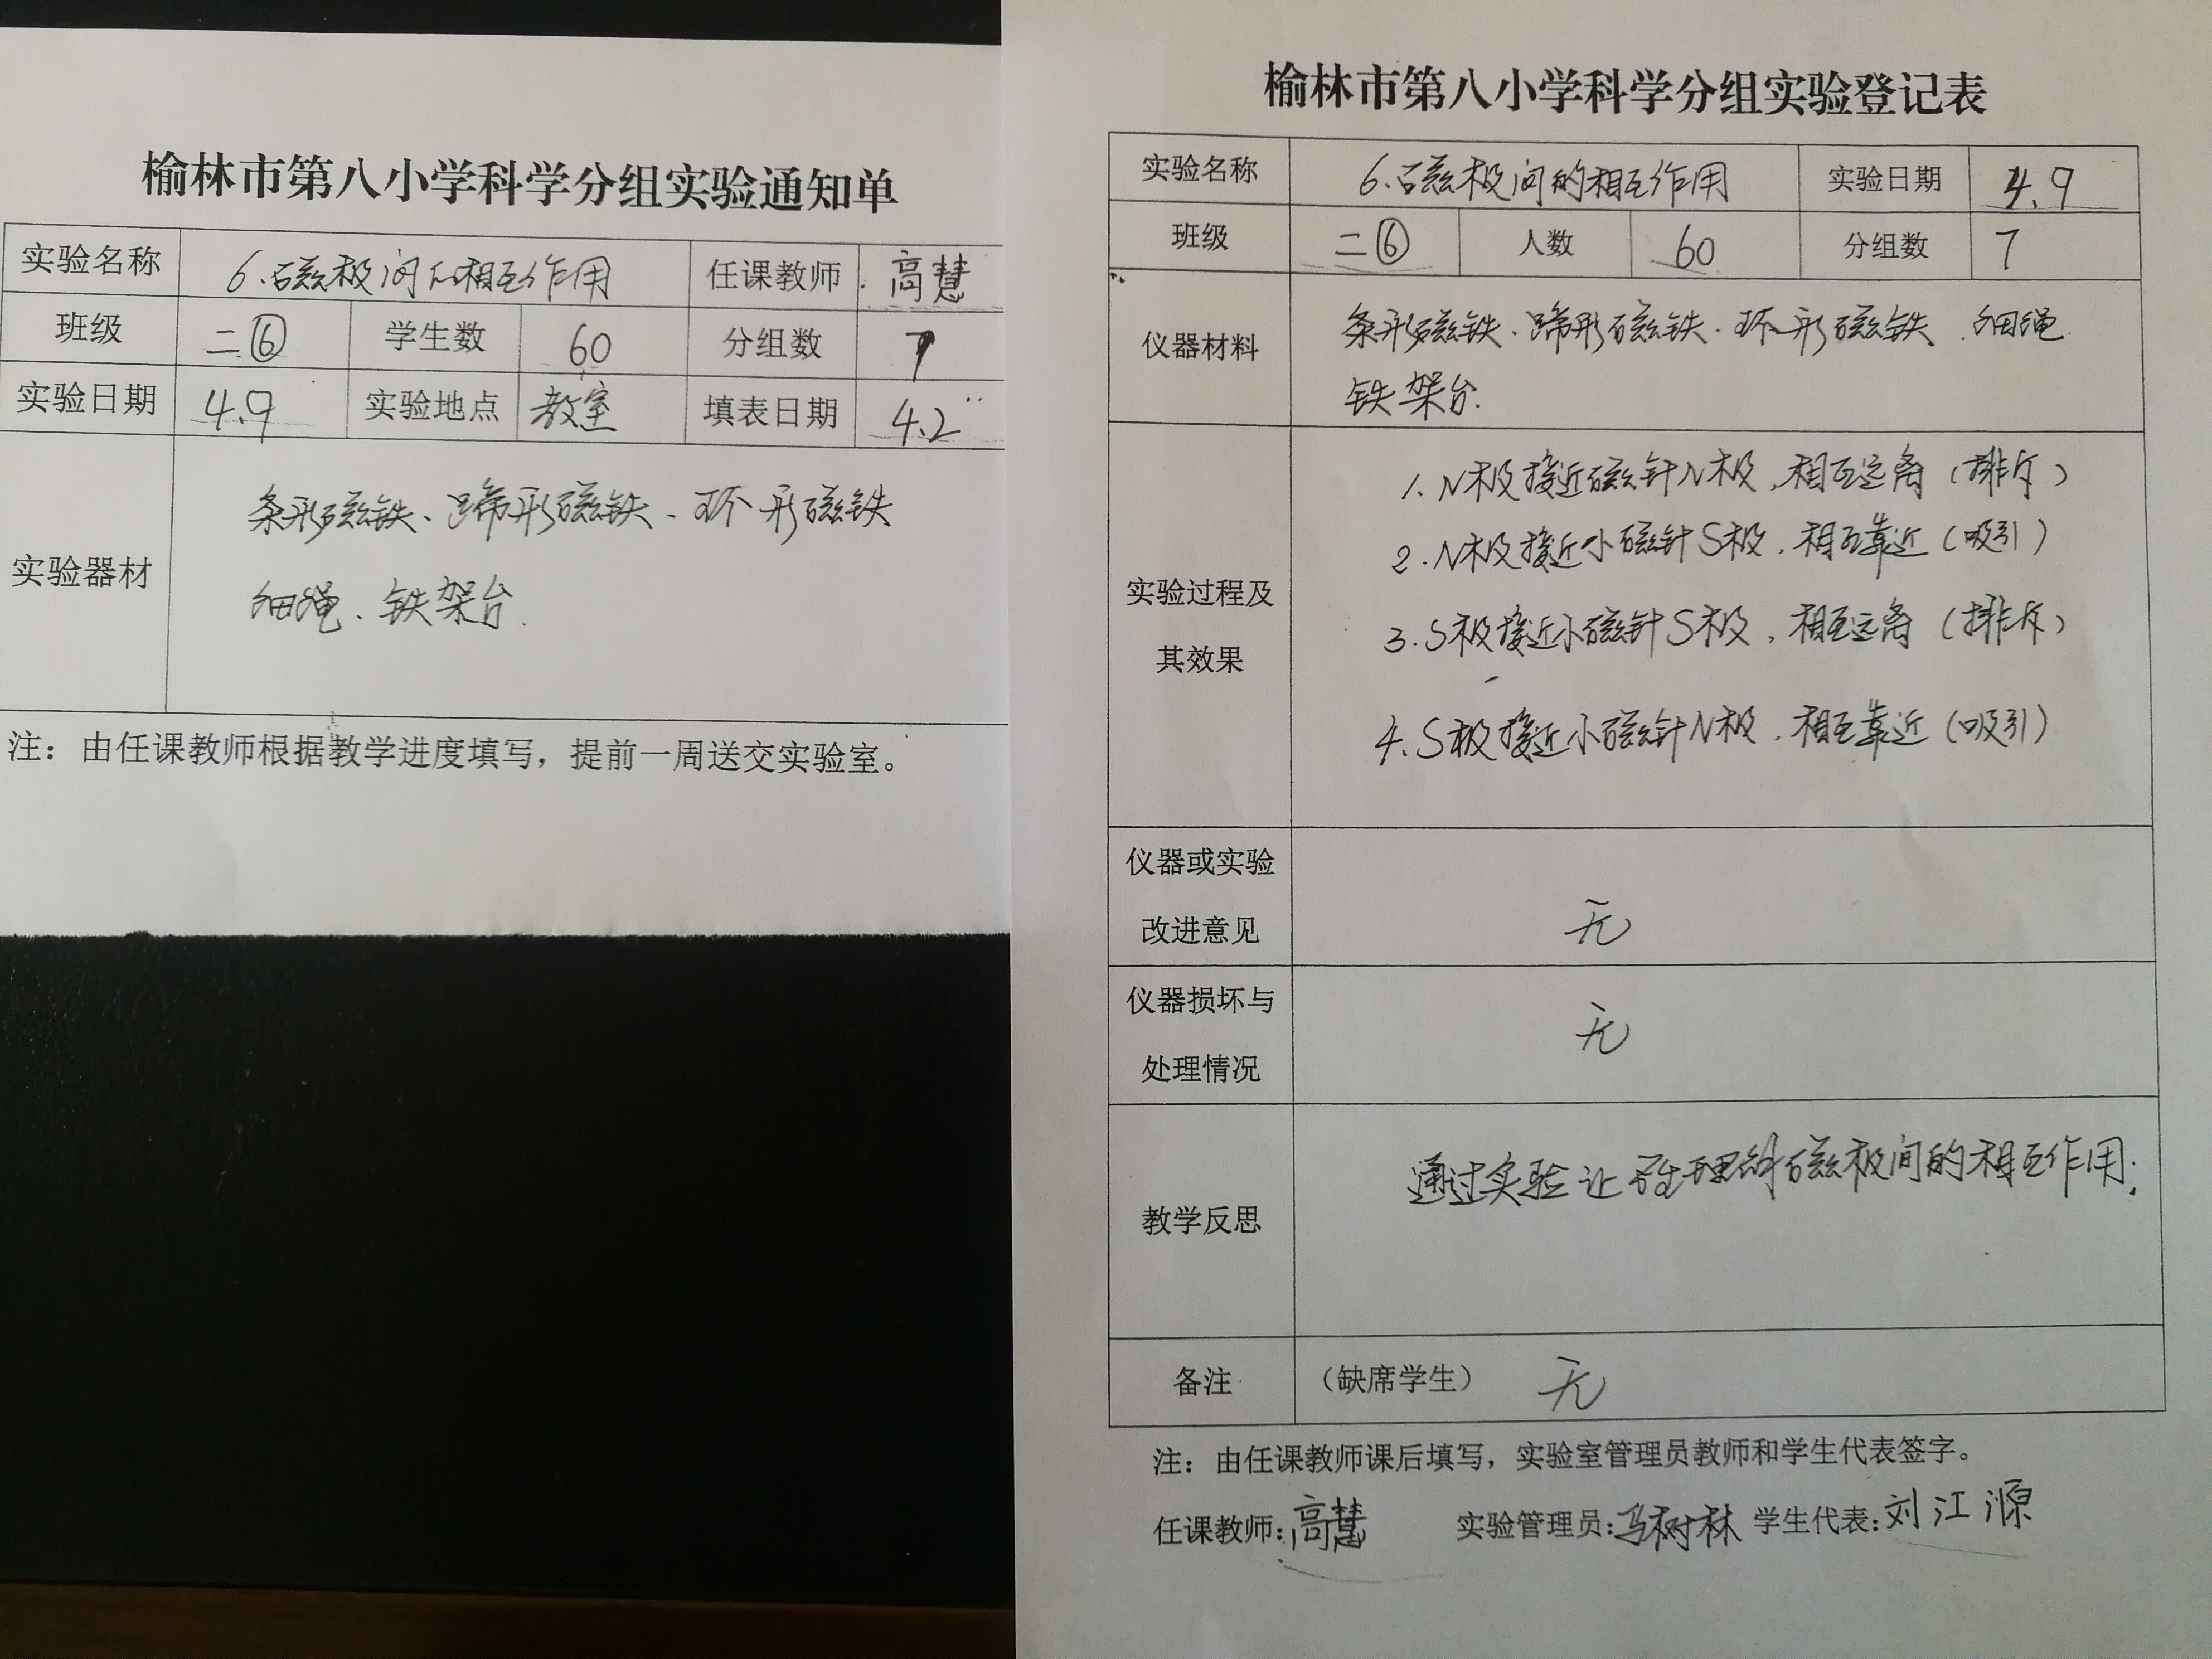 榆林市第八小学科学分组实验通知单
实验名称 6.磁极间的相互作用 任课教师 高慧
班级 二⑥ 学生数 60 分组数 7
实验日期 4.9 实验地点 教室 填表日期 4.2
实验器材
条形磁铁、蹄形磁铁、环形磁铁
细绳、铁架台.
注：由任课教师根据教学进度填写，提前一周送交实验室。
榆林市第八小学科学分组实验登记表
实验名称 6.磁极间的相互作用 实验日期 4.9
班级 二⑥ 人数 60 分组数 7
仪器材料
条形磁铁、蹄形磁铁、环形磁铁、细绳
铁架台.
实验过程及
其效果
1.N极接近磁针N极，相互远离（排斥）
2.N极接近小磁针S极，相互靠近（吸引）
3.S极接近小磁针S极，相互远离（排斥）
4.S极接近小磁针N极，相互靠近（吸引）
仪器或实验
改进意见
无
仪器损坏与
处理情况
无
教学反思
通过实验让 理解磁极间的相互作用.
备注 （缺席学生） 无
注：由任课教师课后填写，实验室管理员教师和学生代表签字。
任课教师：高慧 实验管理员：马树林 学生代表：刘江源